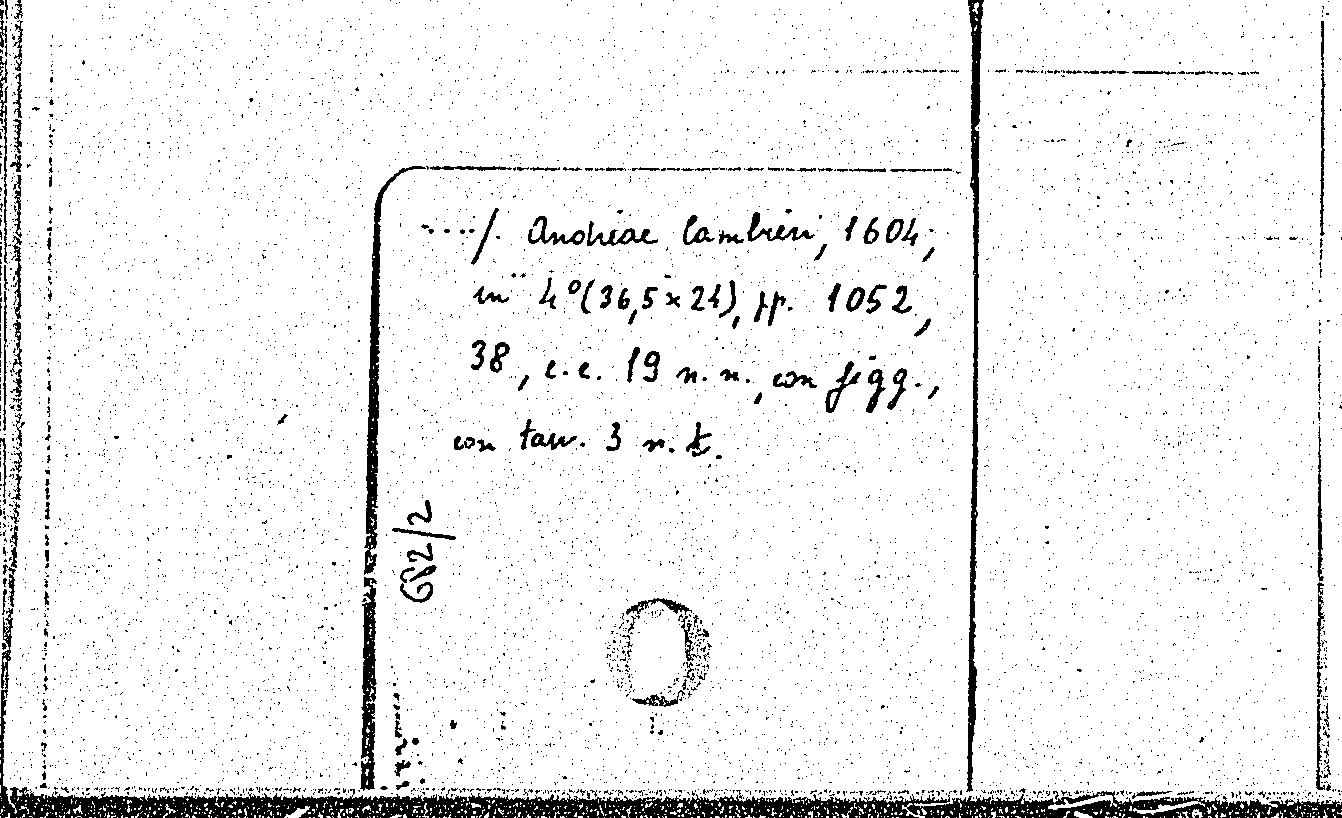 ..../. Andreae Cambieri, 1604,
in 4º (36,5 x 24), pp. 1052,
38, c.c. 19 n. n., con figg.,
con tavv. 3 n. t.